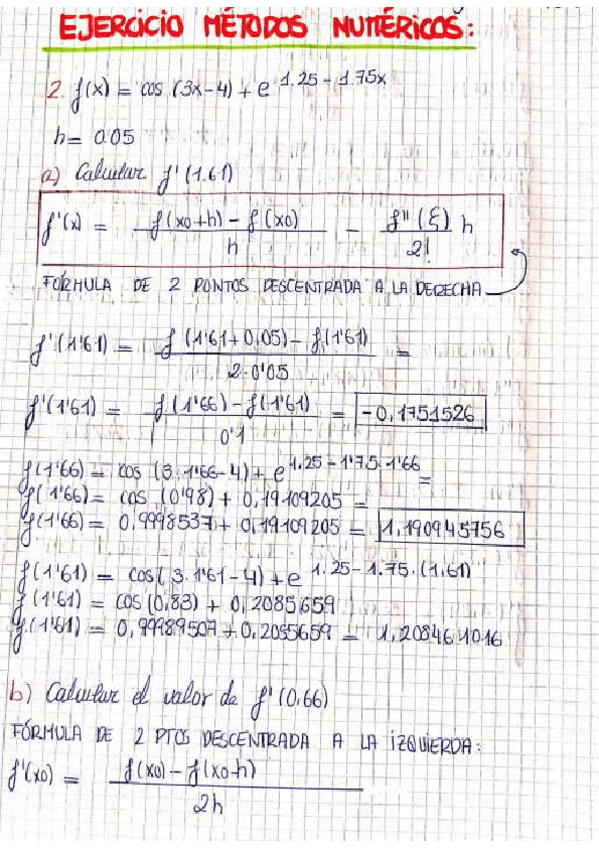 EJERCICIO MÉTODOS NUMÉRICOS:
2. f(x) = cos (3x-4) + e^1.25-1.75x
h= 0.05
a) Calcular f'(1.61)
f'(x) = f(x0+h) - f(x0) / h - f''(ξ) / 2! h
FÓRMULA DE 2 PUNTOS DESCENTRADA A LA DERECHA
f'(1'61) = f(1'61+0,05) - f(1'61) / 2·0'05 =
f'(1'61) = f(1'66) - f(1'61) / 0'1 = -0,1751526
f(1'66) = cos (3·1'66-4) + e^1.25-1'75·1'66 =
f(1'66) = cos (0'98) + 0,19109205 =
f(1'66) = 0,9998537 + 0,19109205 = 1,190945756
f(1'61) = cos(3·1'61-4) + e^1.25-1.75·(1,61)
f(1'61) = cos(0,83) + 0,2085659
f(1'61) = 0,99989507 + 0,2085659 = 1,208461016
b) Calcular el valor de f'(0,66)
FÓRMULA DE 2 PTOS DESCENTRADA A LA IZQUIERDA:
f'(x0) = f(x0) - f(x0-h) / 2h